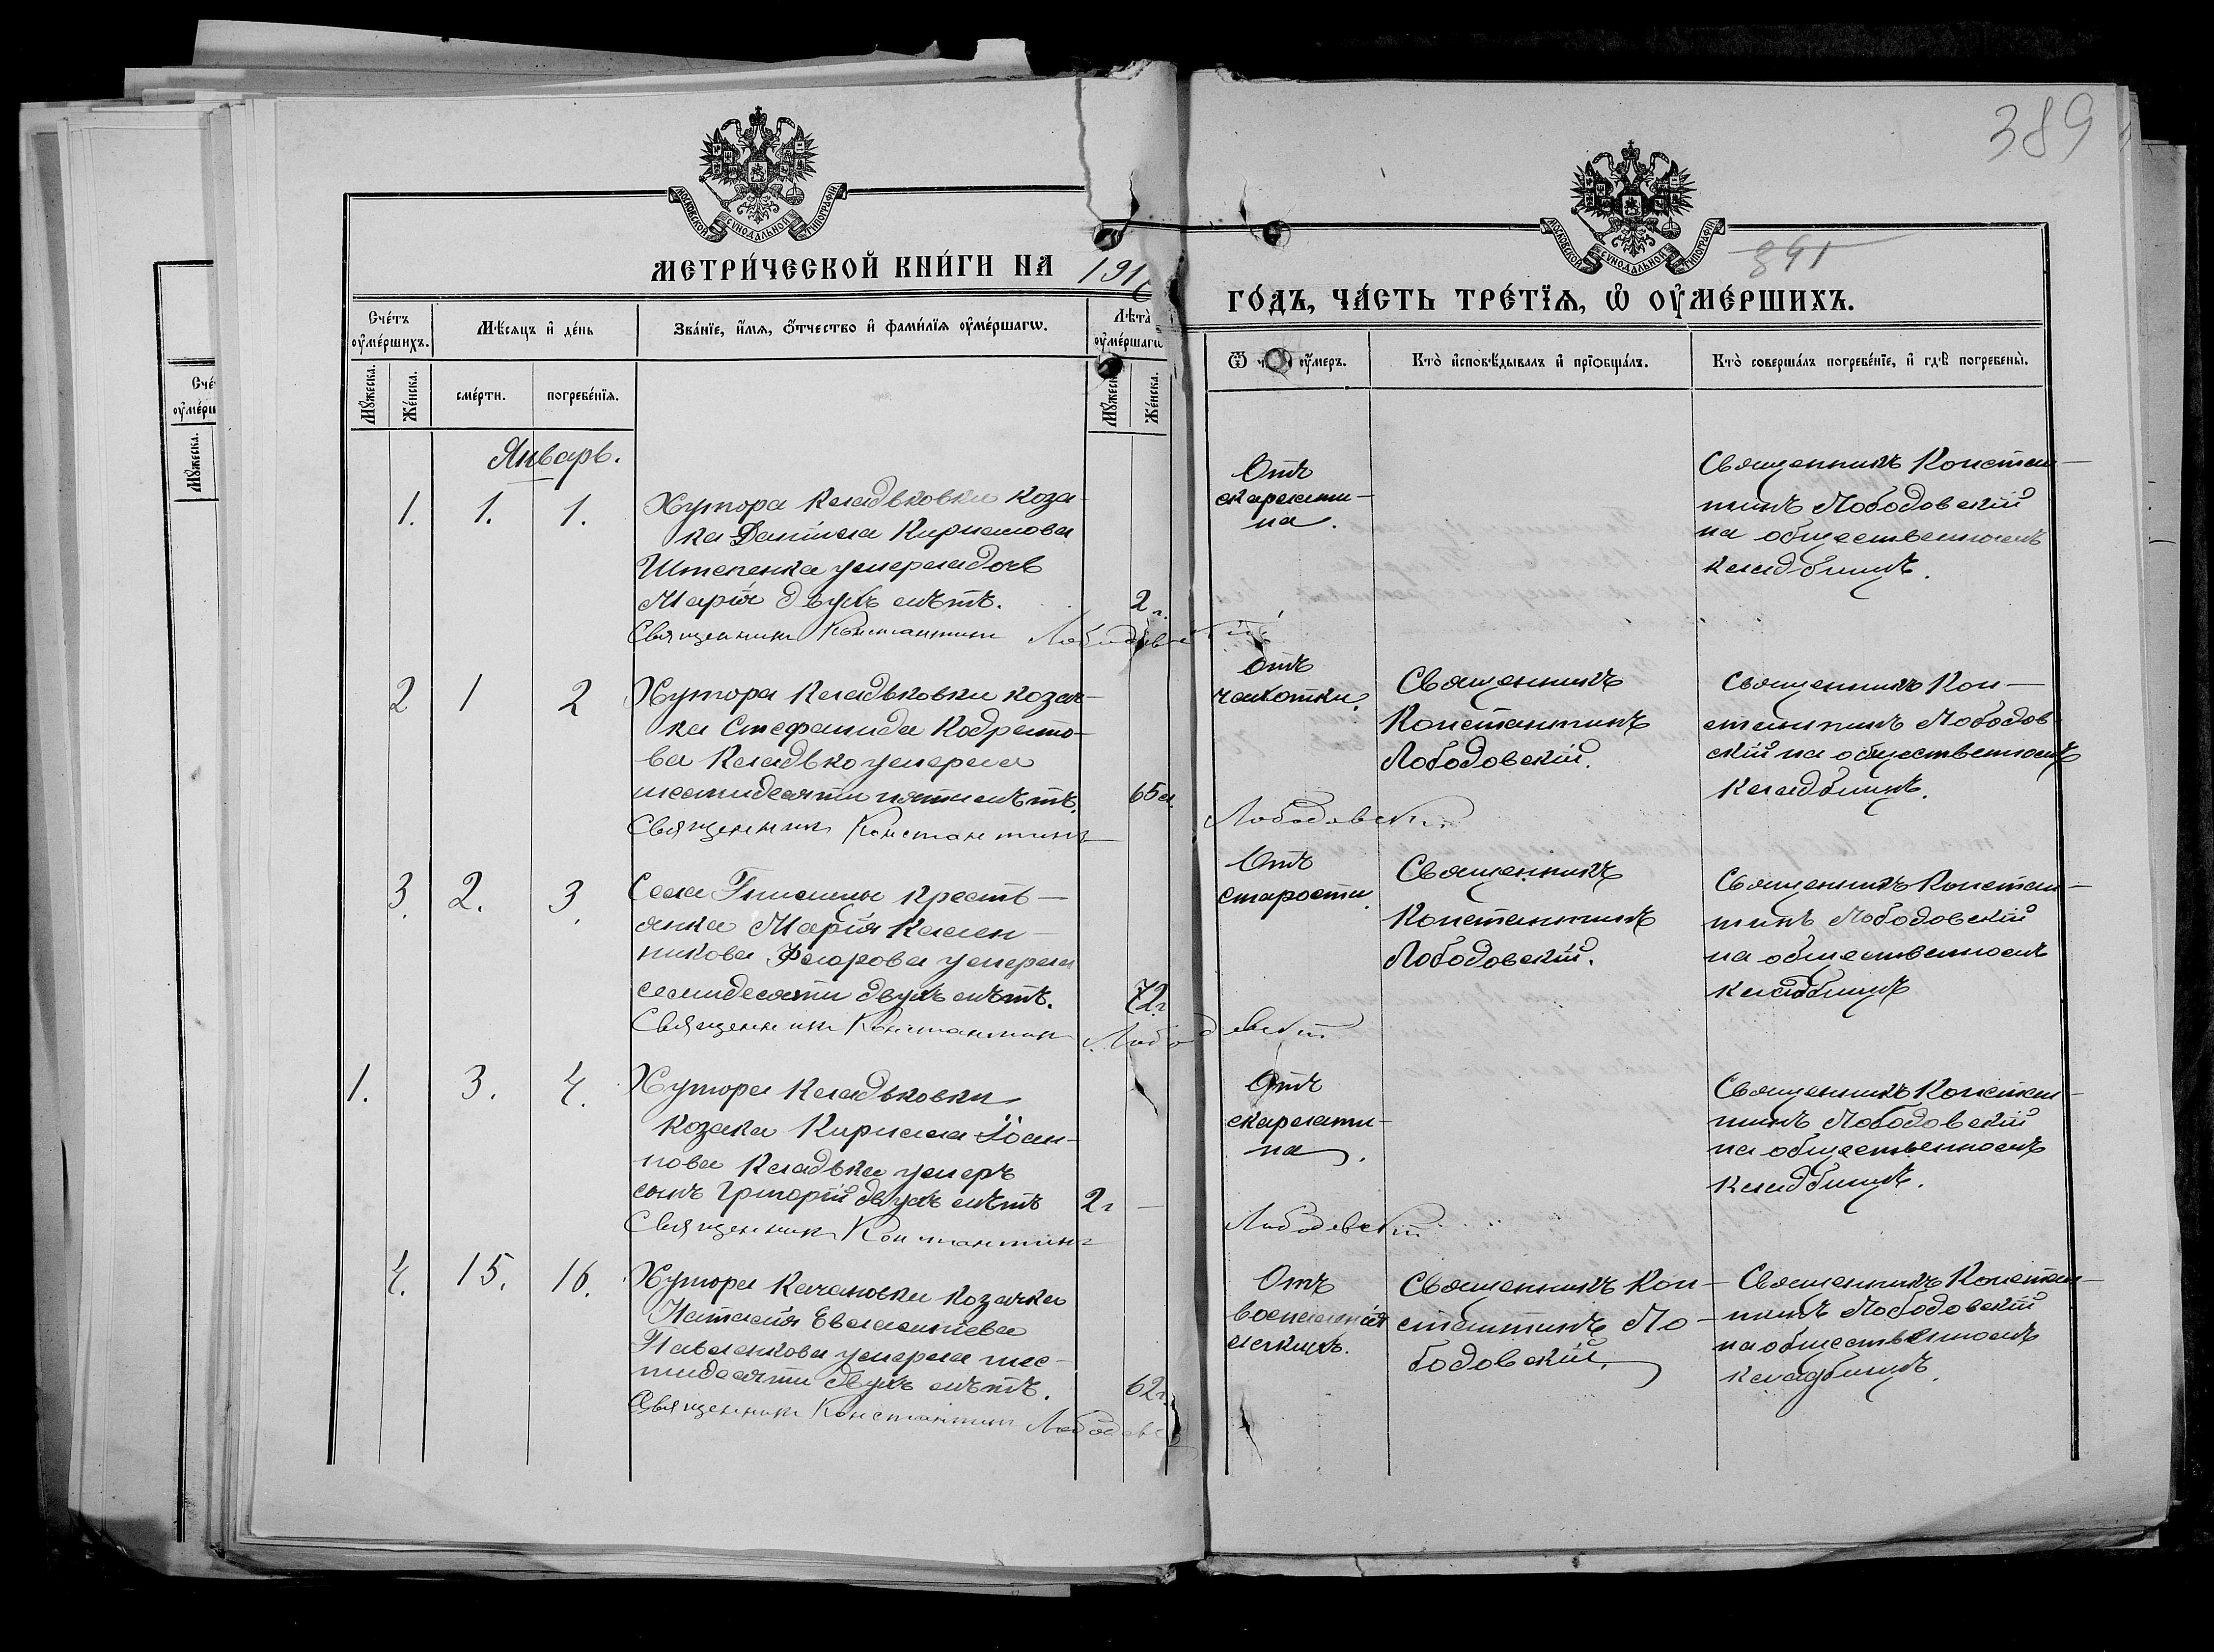 389
МОСКОВСКОЙ СУНОДАЛЬНОЙ ТИПОГРАФІИ
МОСКОВСКОЙ СУНОДАЛЬНОЙ ТИПОГРАФІИ
391
МЕТРИ́ЧЕСКОЙ КНИ́ГИ НА 191
ГО́ДЪ, ЧА́СТЬ ТРЕ́ТЇѦ, Ѡ҆ ОУ҆МЕ́РШИХЪ.
Сче́тъ оу҆ме́ршихъ.
Мѣ́сяцъ и҆ де́нь
Зва́нїе, и҆́мѧ, ѻ҆́тчество и҆ фами́лїѧ оу҆ме́ршагѡ.
Лѣ́та оу҆ме́ршагѡ
Ѿ оу҆́меръ.
Кто̀ и҆сповѣ́дывалъ и҆ прїѻбща́лъ.
Кто̀ соверша́лъ погребе́нїе, и҆ гдѣ̀ погребены̀.
Мꙋ́жеска.
Же́нска.
сме́рти.
погребе́нїѧ.
Мꙋ́жеска.
Же́нска.
Январь.
1. 1. 1.
Хутора Кладьковки коза-
ка Даніила Кириллова
Штепенка умерла дочь
Марія двухъ лѣтъ.
2 г.
Священникъ Константинъ Лободовскій
Отъ
скарлати-
на.
Священникъ Констан-
тинъ Лободовскій
на общественномъ
кладбищѣ.
2 1 2
Хутора Кладьковки козач-
ка Стефанида Кодрато-
ва Кладько умерла
шестидесяти пяти лѣтъ.
65 л
Священникъ Константинъ Лободовскій
Отъ
чахотки.
Священникъ
Константинъ
Лободовскій.
Священникъ Кон-
стантинъ Лободов-
скій на общественномъ
кладбищѣ.
3. 2. 3.
Села Гнилицы крестъ-
янка Марія Калин-
никова умерла
семидесяти двухъ лѣтъ.
72 г
Священникъ Константинъ Лободовскій
Отъ
старости.
Священникъ
Константинъ
Лободовскій.
Священникъ Констан-
тинъ Лободовскій
на общественномъ
кладбищѣ
1. 3. 4.
Хутора Кладьковки
козака Кирилла Іоан-
нова Кладька умеръ
сынъ Григорій двухъ лѣтъ
2 г
Священникъ Константинъ Лободовскій
Отъ
скарлати-
на.
Священникъ Констан-
тинъ Лободовскій
на общественномъ
кладбищѣ.
4. 15. 16.
Хутора Качановки козачка
Наталія Евлампіева
Павленкова умерла шес-
тидесяти двухъ лѣтъ.
62 г.
Священникъ Константинъ Лободовс
Отъ
воспаленія
легкихъ.
Священникъ Кон-
стантинъ Ло-
бодовскій.
Священникъ Констан-
тинъ Лободовскій
на общественномъ
кладбищѣ.